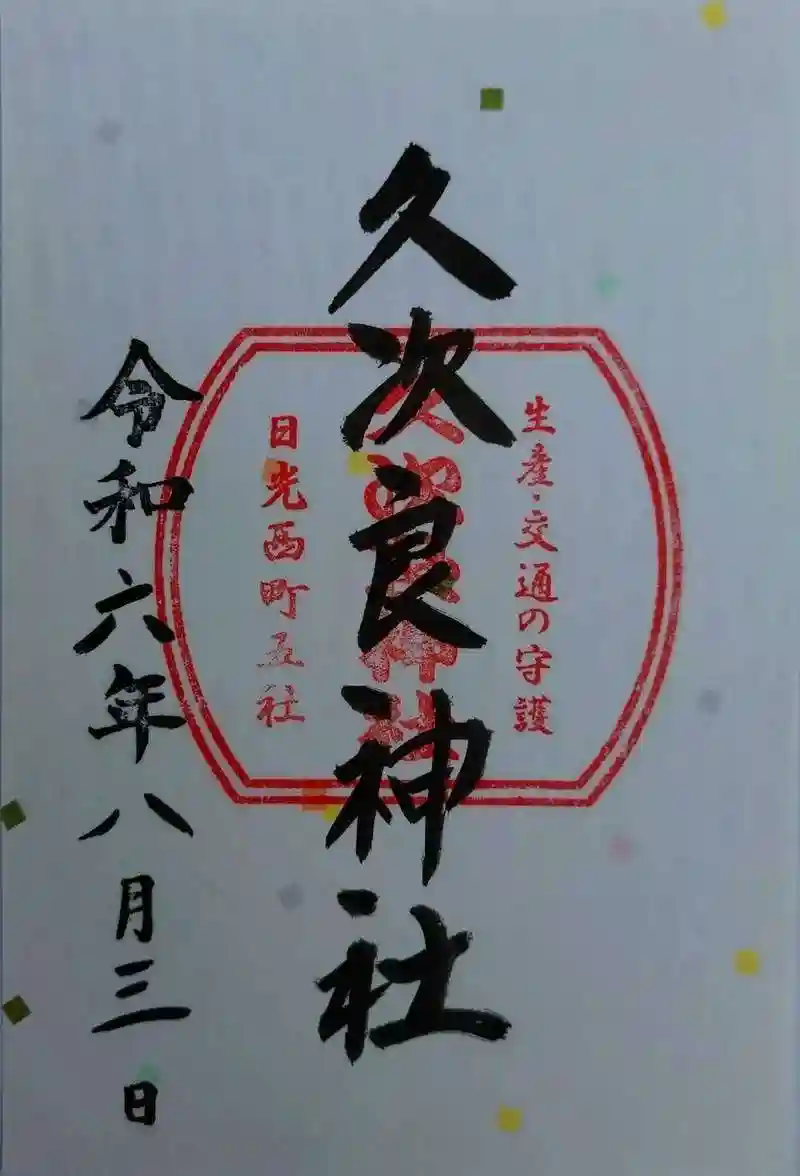 生産・交通の守護
久次良神社
久次良神社
日光西町五社
令和六年八月三日